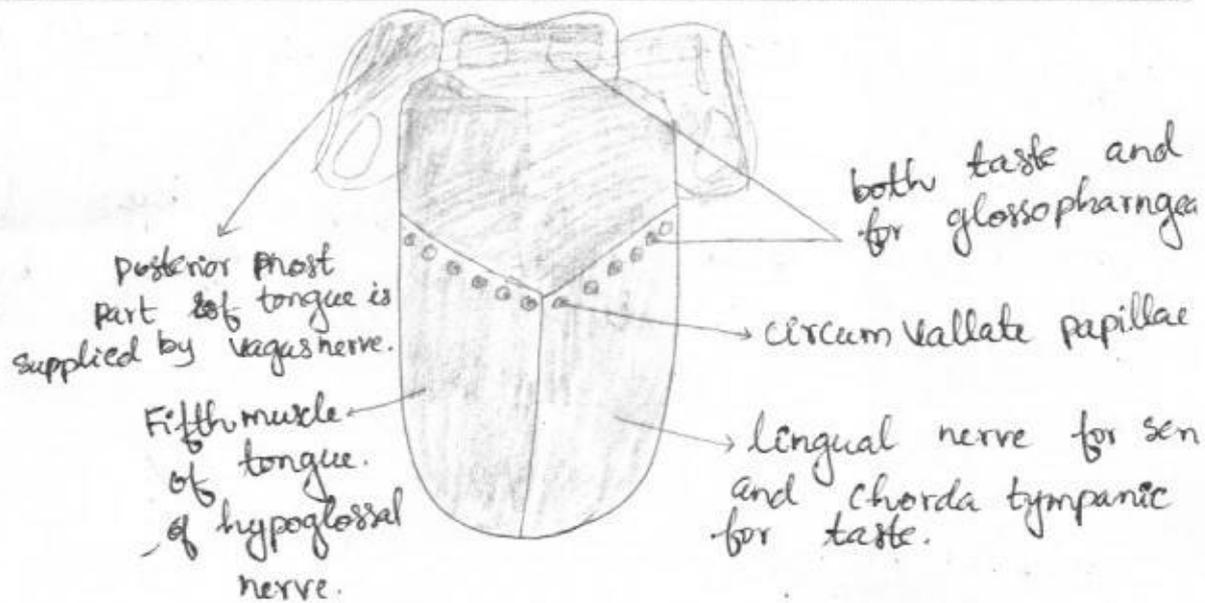 both taste and
for glossopharngea
posterior phost
part of tongue is
supplied by vagasnerve.
circum vallate papillae
Fifth muscle
of tongue.
of hypoglossal
nerve.
lingual nerve for sen
and chorda tympanic
for taste.